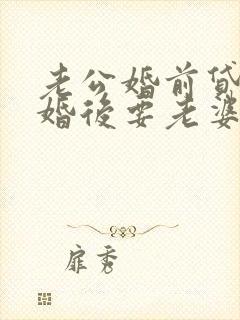 老公婚前貸
婚後要老婆
扉秀